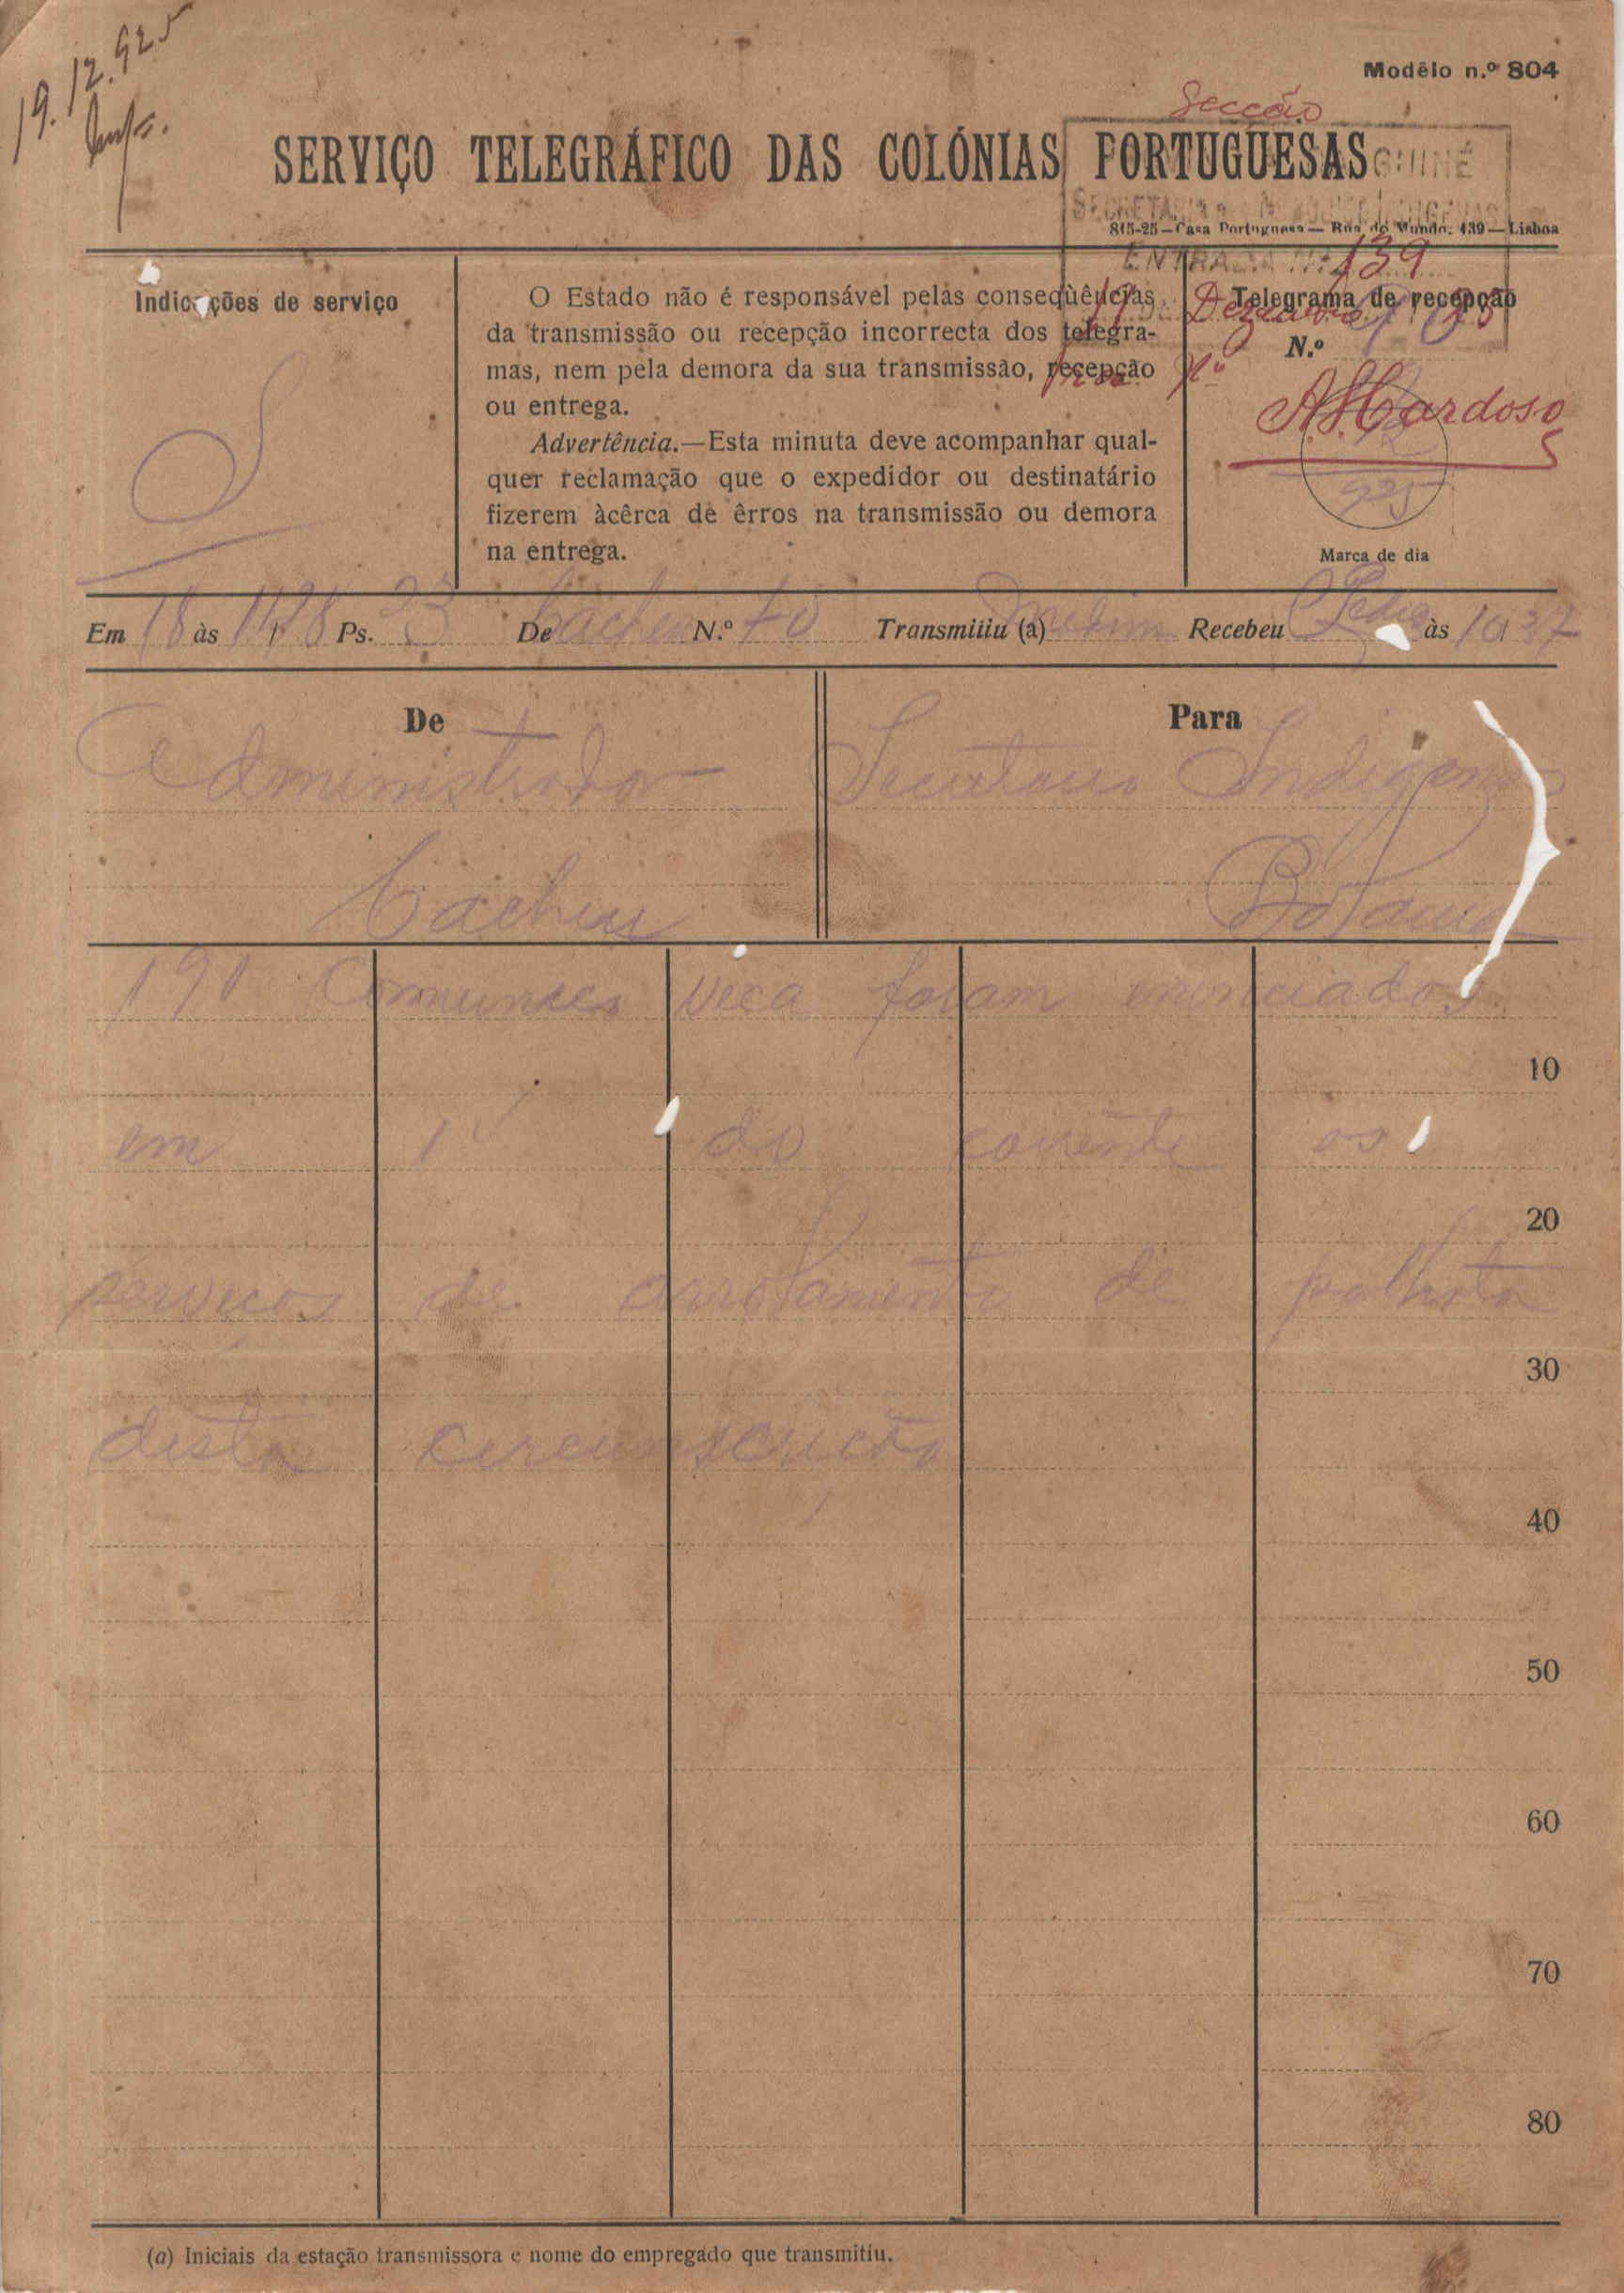 19.12.925
Modêlo n.º 804
Secção
SERVIÇO TELEGRÁFICO DAS COLÓNIAS PORTUGUESAS
GUINÉ
815-25—Casa Portuguesa—Rua do Mundo, 139—Lisboa
ENTRADA N.º 139
19 de Dezembro
Indicações de serviço
O Estado não é responsável pelas conseqùências
da transmissão ou recepção incorrecta dos telegra-
mas, nem pela demora da sua transmissão, recepção
ou entrega.
Advertência.—Esta minuta deve acompanhar qual-
quer reclamação que o expedidor ou destinatário
fizerem àcêrca de êrros na transmissão ou demora
na entrega.
Telegrama de recepção
N.º
AHCardoso
925
Marca de dia
Em 18 às Ps. 23 De Cacheu N.º 40 Transmitiu (a) Recebeu às 10 37
De
Administrador
Cacheu
Para
Secretario Indigenas
Bolama
191 Comunico vexa foram
10
em 1º do corrente os
20
serviços de arrolamento de palhota
30
desta circunscrição
40
50
60
70
80
(a) Iniciais da estação transmissora e nome do empregado que transmitiu.